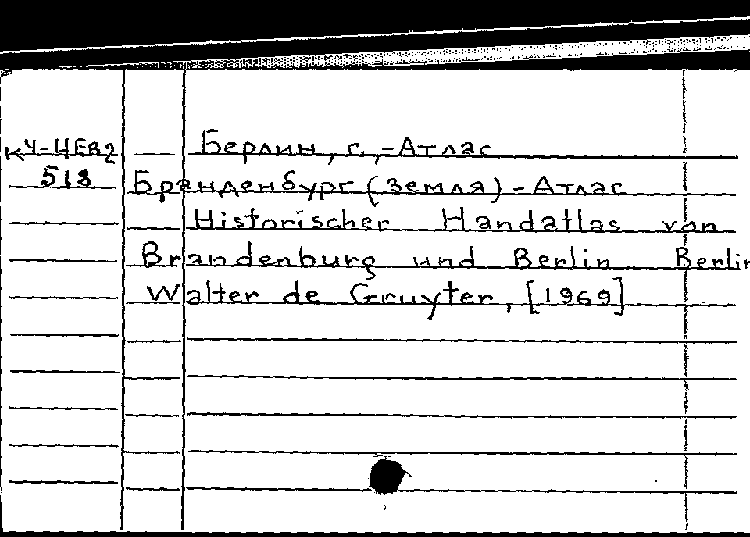 КЧ-ЧЕВ2 Берлин, г.,-Атлас
518 Бранденбург (земля) - Атлас
Historischer Handatlas von
Brandenburg und Berlin Berlin
Walter de Gruyter, [1969]